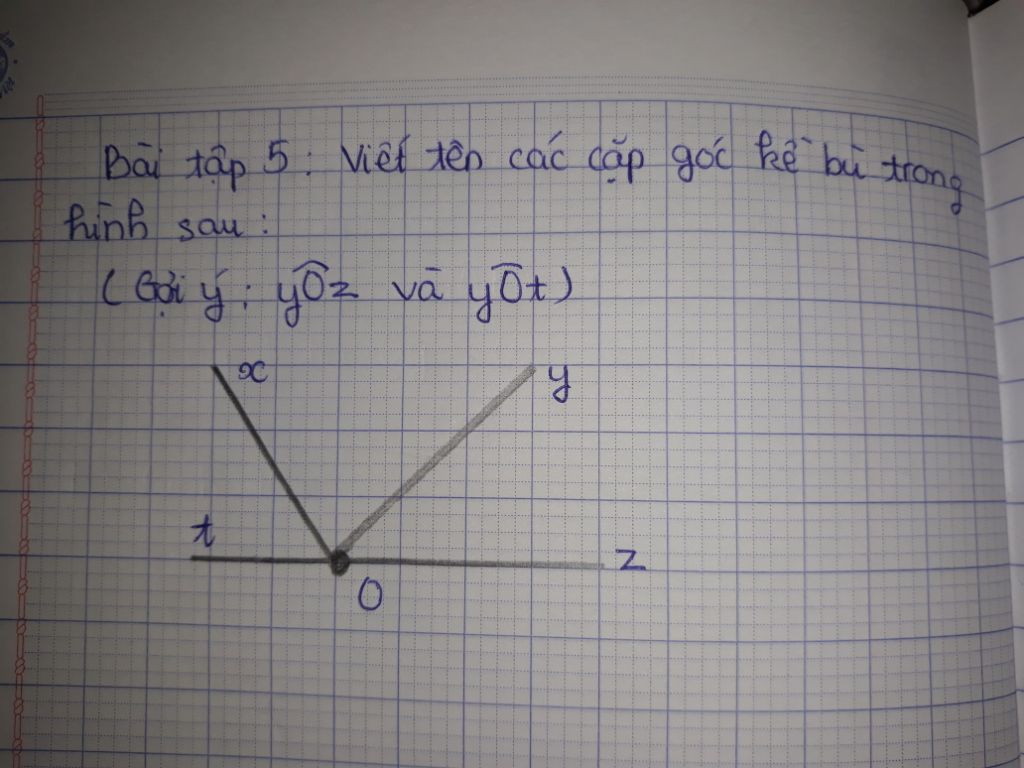 Bài tập 5: Viết tên các cặp góc kề bù trong
hình sau:
(Gợi ý: yÔz và yÔt)
x
y
t
z
O